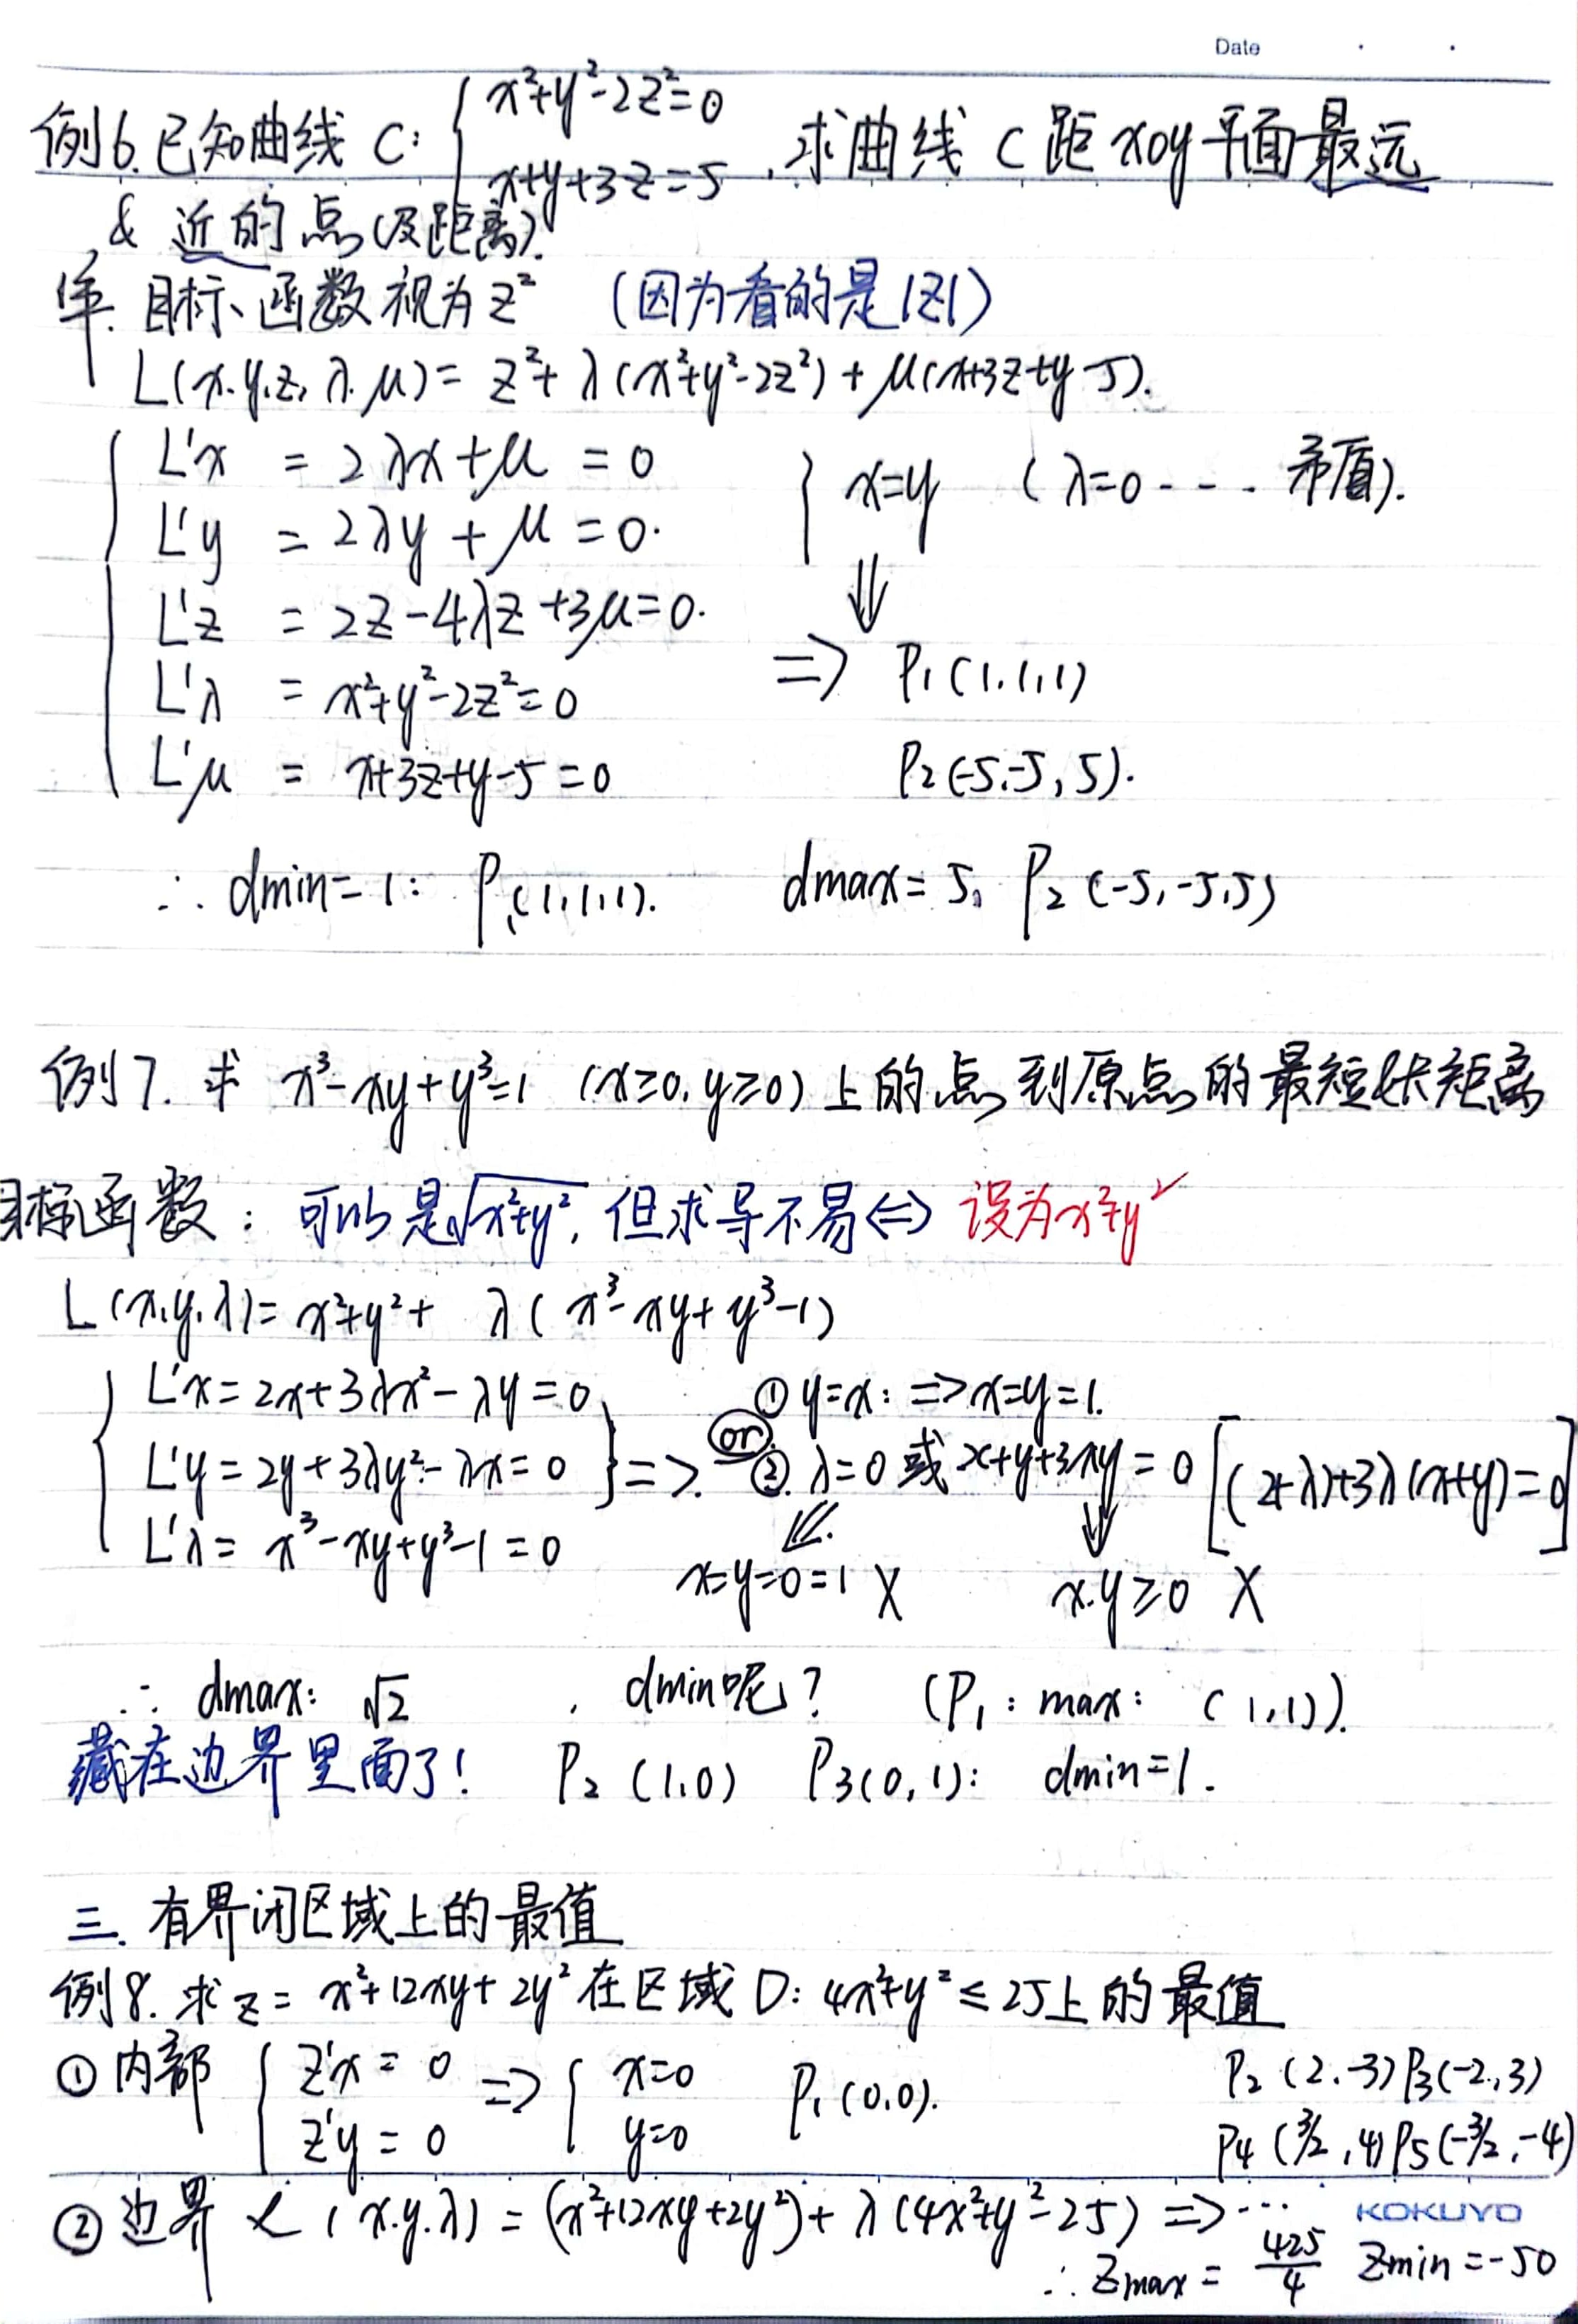 Date
例6.已知曲线 C: { x²+y²-2z²=0
x+y+3z=5 ,求曲线 C 距 xoy 平面最远
& 近的点(及距离).
解. 目标函数视为 z² (因为看的是|z|)
L(x.y.z, λ.μ)= z²+ λ(x²+y²-2z²)+ μ(x+3z+y-5).
L'x = 2λx+μ = 0 } x=y (λ=0 - - - 矛盾).
L'y = 2λy + μ = 0.
L'z = 2z-4λz+3μ=0. ⇓
L'λ = x²+y²-2z²=0 => P₁(1,1,1)
L'μ = x+3z+y-5=0 P₂(-5,-5,5).
∴ dmin=1: P₁(1,1,1). dmax=5, P₂(-5,-5,5)
例7. 求 x³-xy+y³=1 (x≥0, y≥0)上的点到原点的最短&长距离
目标函数: 可以是√x²+y², 但求导不易⇔ 设为x²+y²
L(x,y,λ)= x²+y²+ λ( x³-xy+y³-1)
L'x=2x+3λx²-λy=0 ① y=x: =>x=y=1.
L'y=2y+3λy²-λx=0 } => or ② λ=0 或 x+y+3xy=0 [(2+λ)+3λ(x+y)=0]
L'λ= x³-xy+y³-1=0 ⇓ ⇓
x=y=0=1 X x.y≥0 X
∴ dmax: √2 , dmin呢? (P₁: max: (1,1)).
藏在边界里面了! P₂ (1,0) P₃(0,1): dmin=1.
三. 有界闭区域上的最值
例8. 求z= x²+12xy+2y²在区域 D: 4x²+y²≤25上的最值
①内部 { z'x = 0 => { x=0 P₁(0,0). P₂(2,-3)P₃(-2,3)
z'y = 0 y=0 P4(3/2,4)P5(-3/2,-4)
②边界 L (x.y.λ) = (x²+12xy+2y²)+ λ(4x²+y²-25) => ...
KOKUYO
∴ Zmax = 425/4 Zmin=-50